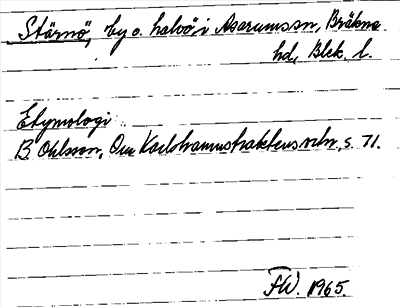 Stärnö, by o. halvö i Asarums sn, Bräkne
hd, Blek. l.
Etymologi
B. Ohlsson, Om Karlshamnstraktens ndn, s. 71.
FW. 1965